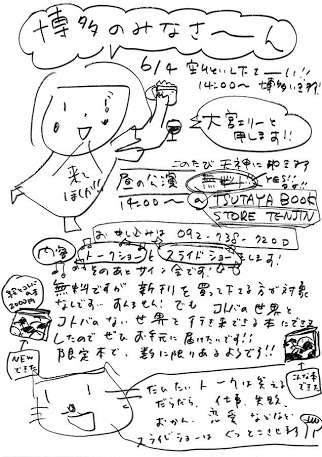 博多のみなさ〜ん
6/4
14:00〜 博多います!
大宮エリーと
申します!!
来て
ほしい!!
このたび 天神に
昼の公演 無料 YES!!
14:00〜 @ TSUTAYA BOOK
STORE TENJIN
お申し込みは 092-738-9200
内容 トークショーと スライドショーします!
そのあとサイン会です!
無料ですが 新刊を買って下さる方が対象
なんです…すんません! でも コトバの世界と
コトバのない世界を行き来できる本にできま
したので ぜひ お手元に届けたいです!!
限定本で、数に限りあるようです!!
NEW
できた
こんな本
できた
だいたい トークは笑える
だらだら、仕事、失敗、
おかん、恋愛 などなど
スライドショーは ぐっとこさせます